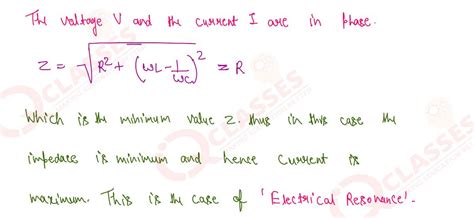 The voltage V and the current I are in phase.
Z = √(R² + (ωL - 1/ωC)²) = R
Which is the minimum value Z. thus in this case the
impedace is minimum and hence current is
maximum. This is the case of 'Electrical Resonance'.
CLASSES
CLASSES
CLASSES